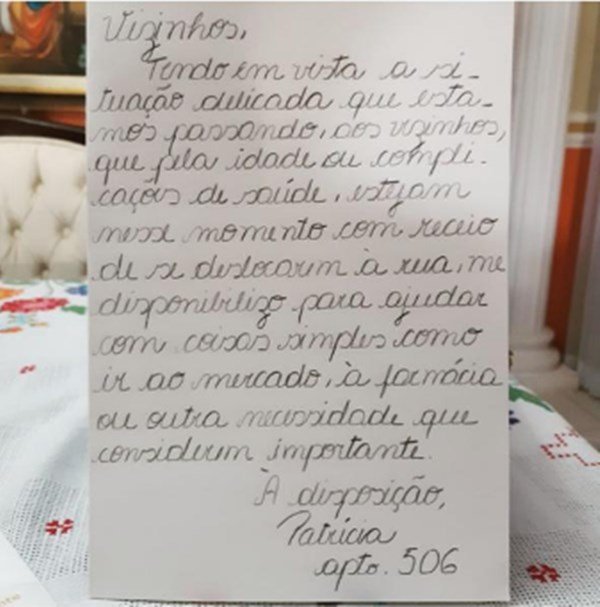 Vizinhos,
Tendo em vista a si-
tuação delicada que esta-
mos passando, aos vizinhos,
que pela idade ou compli-
cações de saúde, estejam
nesse momento com receio
de se deslocarem à rua, me
disponibilizo para ajudar
com coisas simples como
ir ao mercado, à farmácia
ou outra necessidade que
considerem importante.
À disposição,
Patrícia
apto. 506